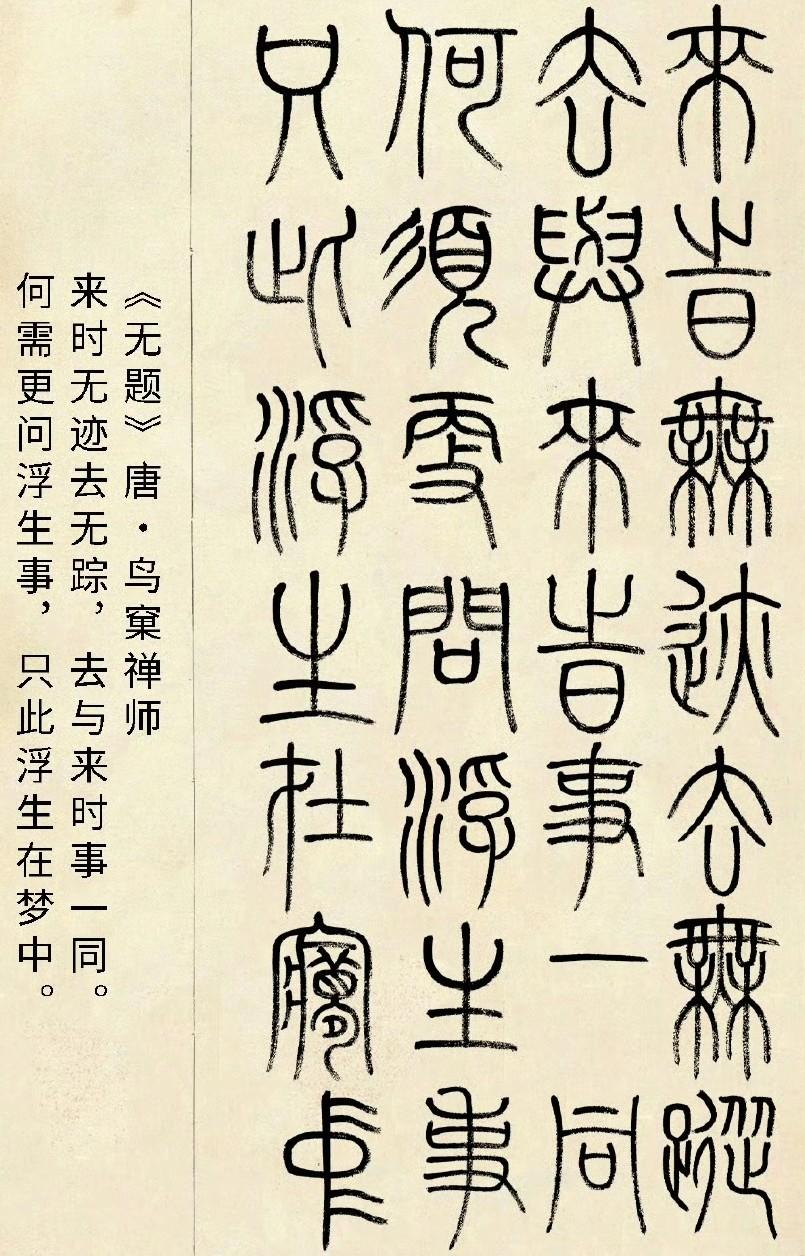 來旹無迹去無蹤
去與來旹事一同
何須更問浮生事
只此浮生在㝱中
《无题》唐·鸟窠禅师
来时无迹去无踪，去与来时事一同。
何需更问浮生事，只此浮生在梦中。